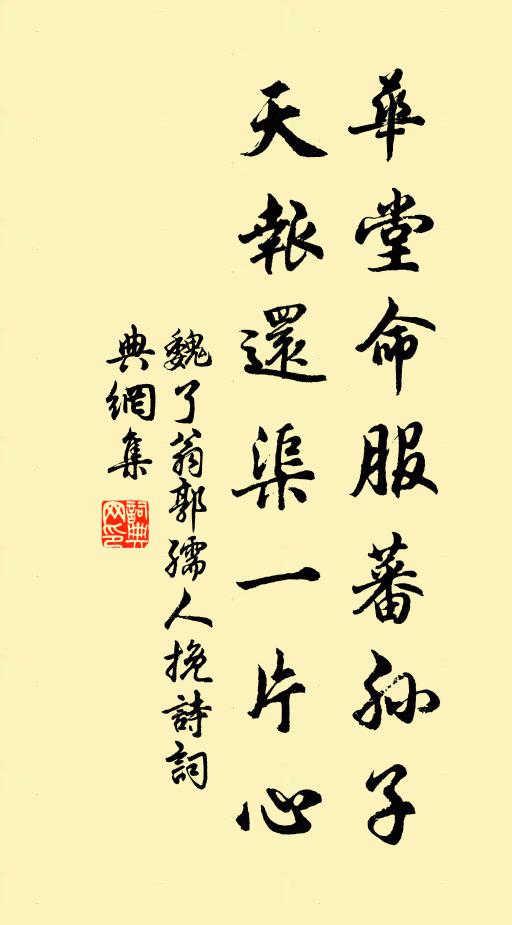 華堂命服蕃孙子
天報還渠一片心
魏了翁郭孺人挽詩詞
典網集
詞典
网印